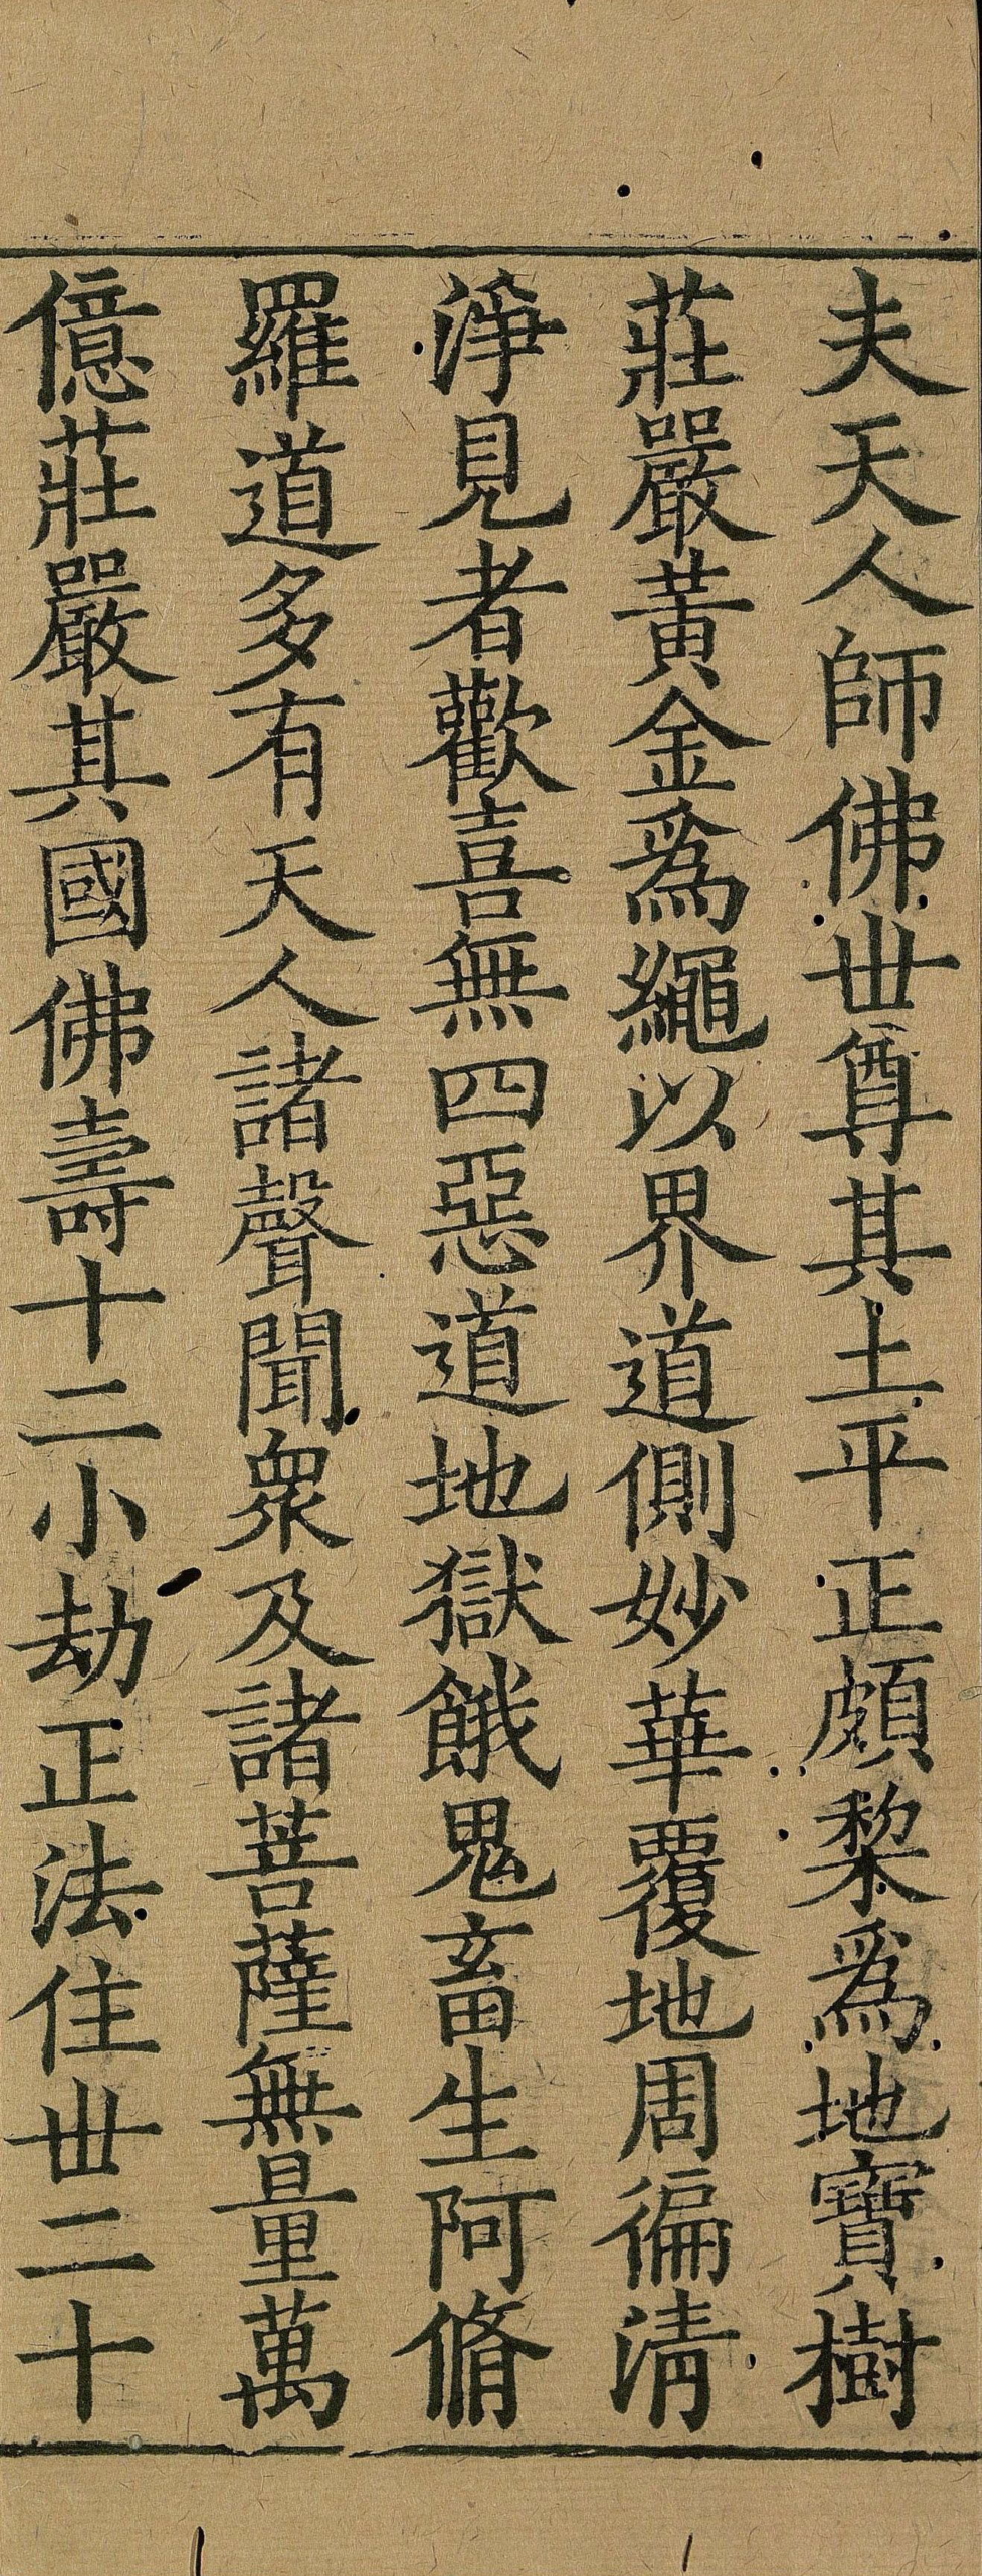 夫天人師佛世尊其土平正頗棃爲地寶樹
莊嚴黃金爲繩以界道側妙華覆地周徧清
淨見者歡喜無四惡道地獄餓鬼畜生阿脩
羅道多有天人諸聲聞衆及諸菩薩無量萬
億莊嚴其國佛壽十二小劫正法住世二十